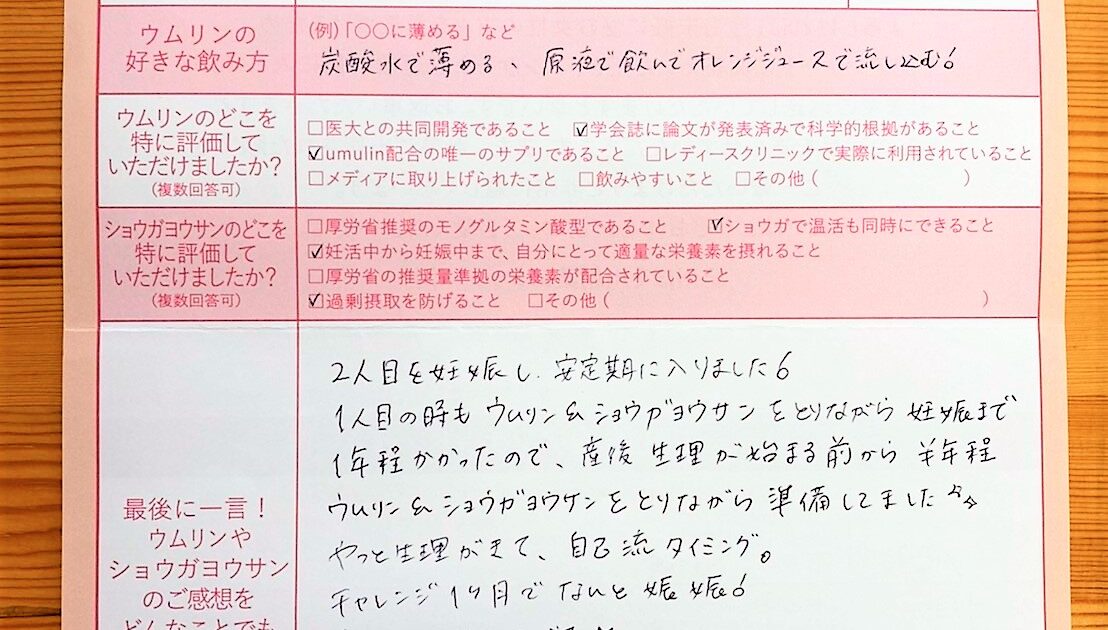 ウムリンの
好きな飲み方
(例)「〇〇に薄める」など
炭酸水で薄める、原液で飲んでオレンジジュースで流し込む!
ウムリンのどこを
特に評価して
いただけましたか?
(複数回答可)
□医大との共同開発であること ☑学会誌に論文が発表済みで科学的根拠があること
☑umulin配合の唯一のサプリであること □レディースクリニックで実際に利用されていること
□メディアに取り上げられたこと □飲みやすいこと □その他( )
ショウガヨウサンのどこを
特に評価して
いただけましたか?
(複数回答可)
□厚労省推奨のモノグルタミン酸型であること ☑ショウガで温活も同時にできること
☑妊活中から妊娠中まで、自分にとって適量な栄養素を摂れること
□厚労省の推奨量準拠の栄養素が配合されていること
☑過剰摂取を防げること □その他( )
最後に一言!
ウムリンや
ショウガヨウサン
のご感想を
どんなことでも
2人目を妊娠し、安定期に入りました!
1人目の時も ウムリン&ショウガヨウサンをとりながら 妊娠まで
1年程かかったので、産後 生理が始まる前から 半年程
ウムリン&ショウガヨウサンをとりながら 準備してました
やっと生理がきて、自己流タイミング。
チャレンジ1ヶ月で なんと 妊娠!